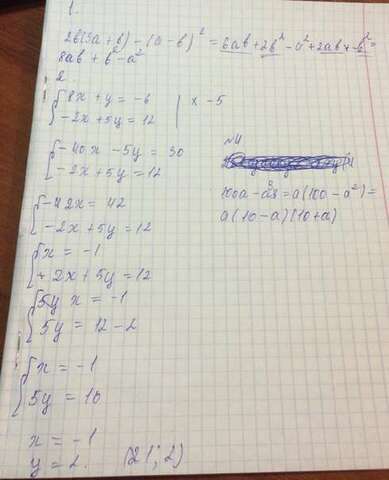 1.
2b(3a+b) - (a-b)² = 6ab+2b²-a²+2ab+b²=
8ab+b²-a²
2.
{8x+y=-6 | x -5
{-2x+5y=12
{-40x-5y=30
{-2x+5y=12
{-42x=42
{-2x+5y=12
{x=-1
{+2x+5y=12
{5y x=-1
{5y=12-2
{x=-1
{5y=10
x=-1
y=2. (21; 2)
№4
100a-a³=a(100-a²)=
a(10-a)(10+a)